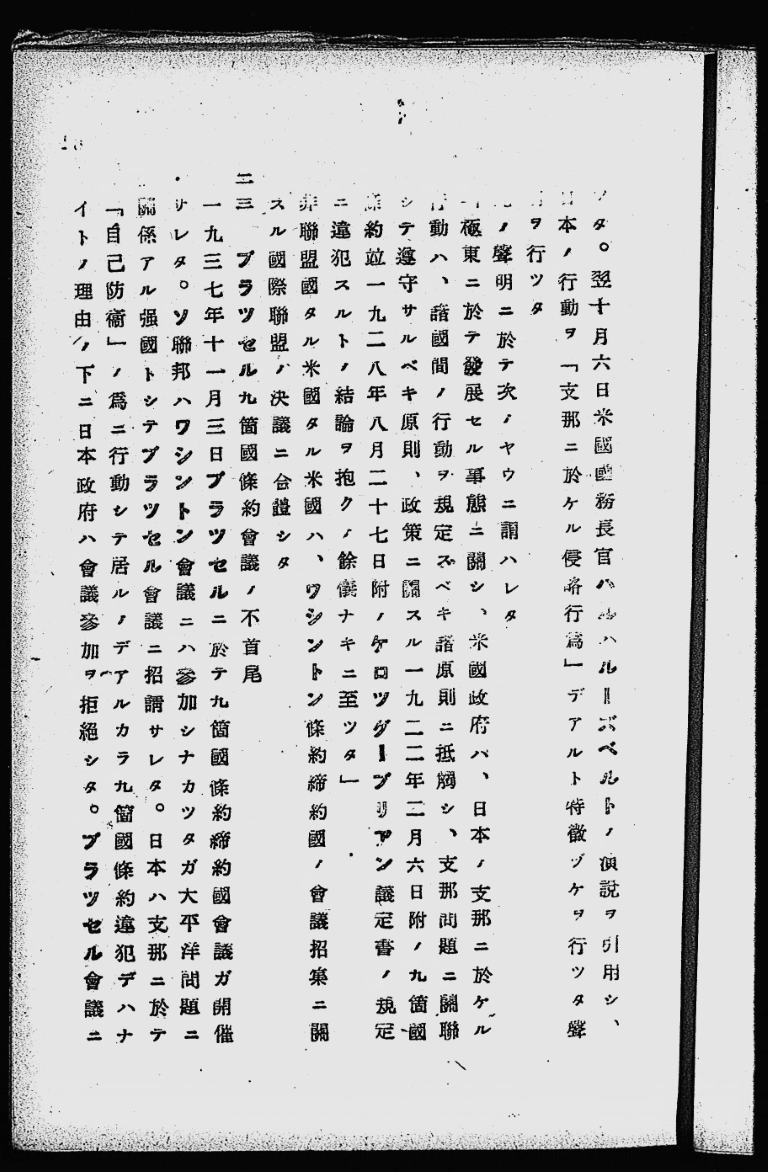 ツタ。翌十月六日米國國務長官ハルハルーズベルトノ演説ヲ引用シ、
日本ノ行動ヲ「支那ニ於ケル侵略行爲」デアルト特徴ヅケヲ行ツタ聲
明ヲ行ツタ
此ノ聲明ニ於テ次ノヤウニ謂ハレタ
「極東ニ於テ發展セル事態ニ關シ、米國政府ハ、日本ノ支那ニ於ケル
行動ハ、諸國間ノ行動ヲ規定スベキ諸原則ニ抵觸シ、支那問題ニ關聯
シテ遵守サルベキ原則、政策ニ關スル一九二二年二月六日附ノ九箇國
條約竝一九二八年八月二十七日附ノケロツグーブリアン議定書ノ規定
ニ違犯スルトノ結論ヲ抱クノ餘儀ナキニ至ツタ」
非聯盟國タル米國タル米國ハ、ワシントン條約締約國ノ會議招集ニ關
スル國際聯盟ノ決議ニ合體シタ
二三 ブラツセル九箇國條約會議ノ不首尾
一九三七年十一月三日ブラツセルニ於テ九箇國條約締約國會議ガ開催
サレタ。ソ聯邦ハワシントン會議ニハ參加シナカツタガ大平洋問題ニ
關係アル强國トシテブラツセル會議ニ招請サレタ。日本ハ支那ニ於テ
「自己防衞」ノ爲ニ行動シテ居ルノデアルカラ九箇國條約違犯デハナ
イトノ理由ノ下ニ日本政府ハ會議參加ヲ拒絕シタ。ブラツセル會議ニ